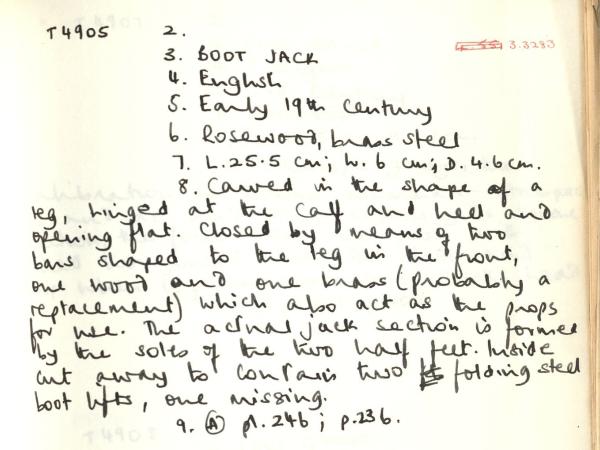 T4905 2.
3.3283
3. BOOT JACK
4. English
5. Early 19th Century
6. Rosewood, brass steel
7. L.25.5 cm; W.6 cm; D.4.6cm.
8. Carved in the shape of a
leg, hinged at the calf and heel and
opening flat. Closed by means of two
bars shaped to the leg in the front,
one wood and one brass (probably a
replacement) which also act as the props
for use. The actual jack section is formed
by the soles of the two half feet. Inside
cut away to contain two folding steel
boot lifts, one missing.
9. (A) pl.246; p.236.